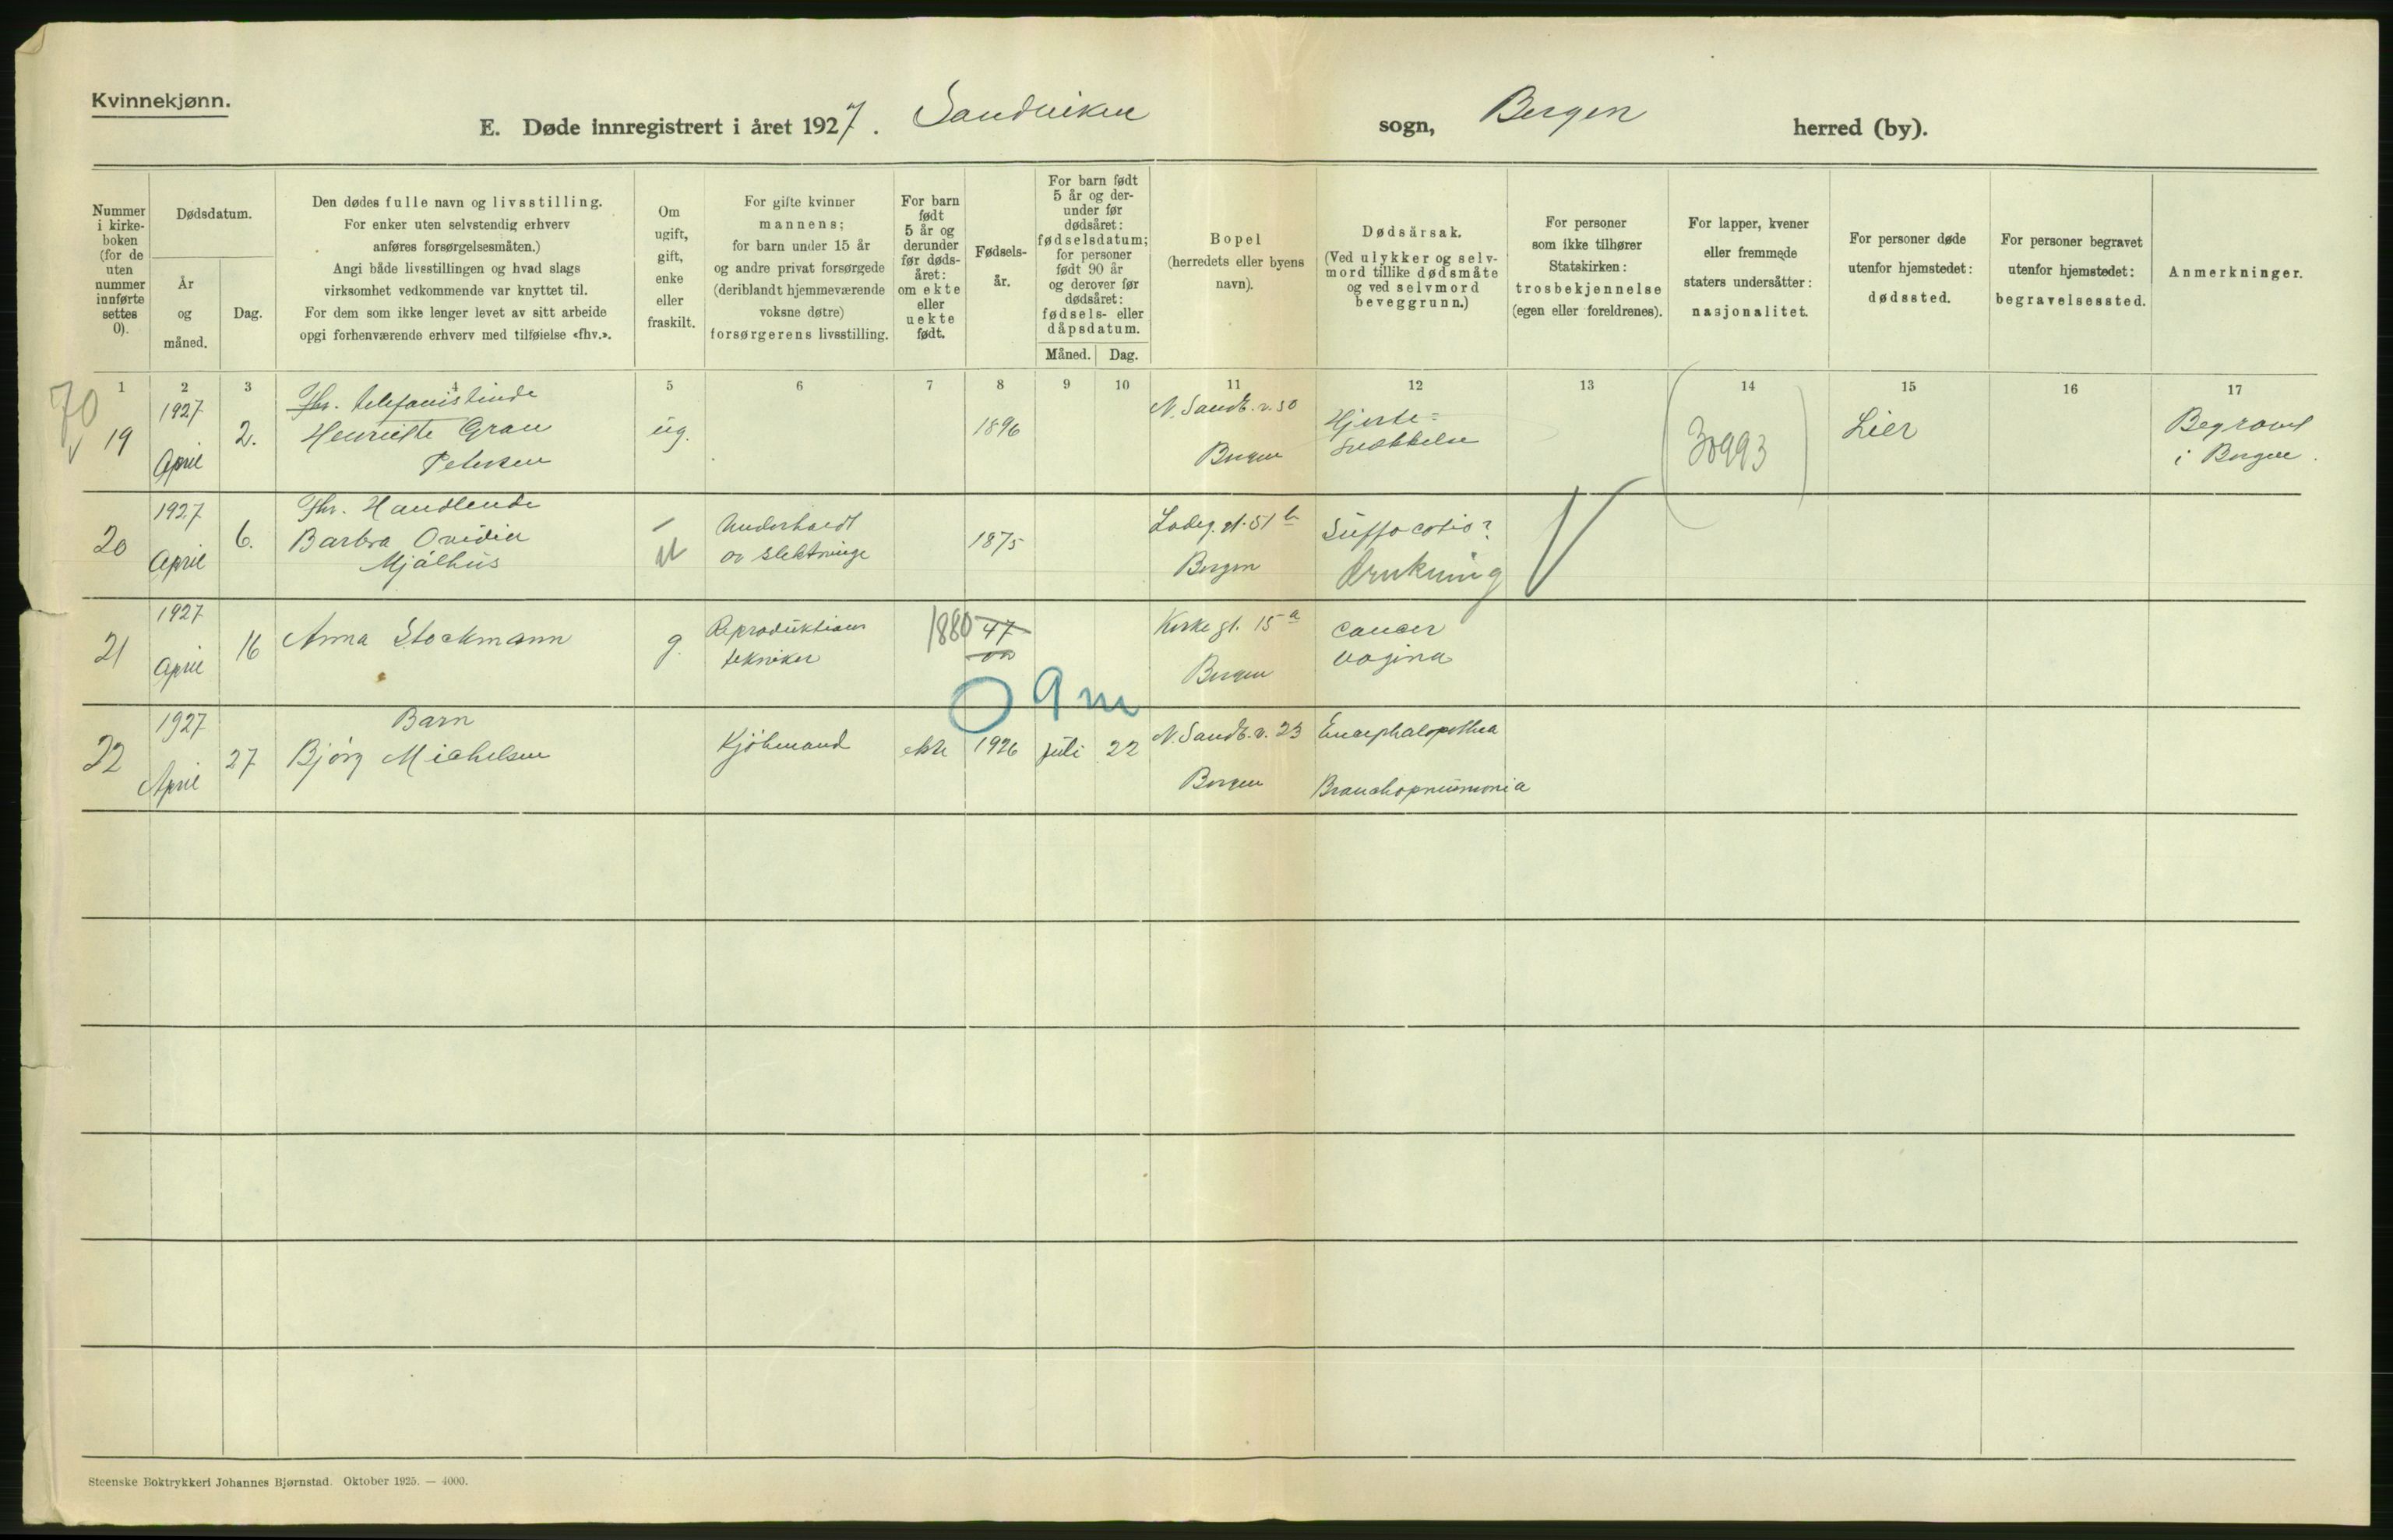 Kvinnekjønn.
E. Døde innregistrert i året 1927. Sandviken sogn, Bergen herred (by).
Nummer
i kirke-
boken
(for de
uten
nummer
innførte
settes
0).
Dødsdatum.
År
og
måned.
Dag.
Den dødes fulle navn og livsstilling.
For enker uten selvstendig erhverv
anføres forsørgelsesmåten.)
Angi både livsstillingen og hvad slags
virksomhet vedkommende var knyttet til.
For dem som ikke lenger levet av sitt arbeide
opgi forhenværende erhverv med tilføielse «fhv.».
Om
ugift,
gift,
enke
eller
fraskilt.
For gifte kvinner
mannens;
for barn under 15 år
og andre privat forsørgede
(deriblandt hjemmeværende
voksne døtre)
forsørgerens livsstilling.
For barn
født
5 år og
derunder
før døds-
året:
om ekte
eller
uekte
født.
Fødsels-
år.
For barn født
5 år og der-
under før
dødsåret:
fødselsdatum;
for personer
født 90 år
og derover før
dødsåret:
fødsels- eller
dåpsdatum.
Måned. Dag.
Bopel
(herredets eller byens
navn).
Dødsårsak.
(Ved ulykker og selv-
mord tillike dødsmåte
og ved selvmord
beveggrunn.)
For personer
som ikke tilhører
Statskirken:
trosbekjennelse
(egen eller foreldrenes).
For lapper, kvener
eller fremmede
staters undersåtter:
nasjonalitet.
For personer døde
utenfor hjemstedet:
dødssted.
For personer begravet
utenfor hjemstedet:
begravelsessted.
Anmerkninger.
1 2 3 4 5 6 7 8 9 10 11 12 13 14 15 16 17
70
19
1927
April
2.
Fhv. telefonistinde
Henriette Gran
Petersen
ug.
1896
N. Sandv. v. 50
Bergen
Hjerte=
(30993)
Lier
Begravet
i Bergen.
20
1927
April
6.
Fhv. Handlende
Barbra Ovidia
Mjålhus
Underholdt
av slektninge
1875
Ladeg. gt. 51 b
Bergen
Suffocatio?
drukning
21
1927
April
16
Anna Stockmann
g.
Reproduktions
tekniker
1880
47
Kirke gt. 15 a
Bergen
Cancer
vagina
0 9 m
22
1927
April
27
Barn
Bjørg Michelsen
Kjöbmand
ekte
1926
juli
22
N. Sandv. v. 23
Bergen
Encephalopathia
Bronchopneumonia
Steenske Boktrykkeri Johannes Bjørnstad. Oktober 1925. — 4000.